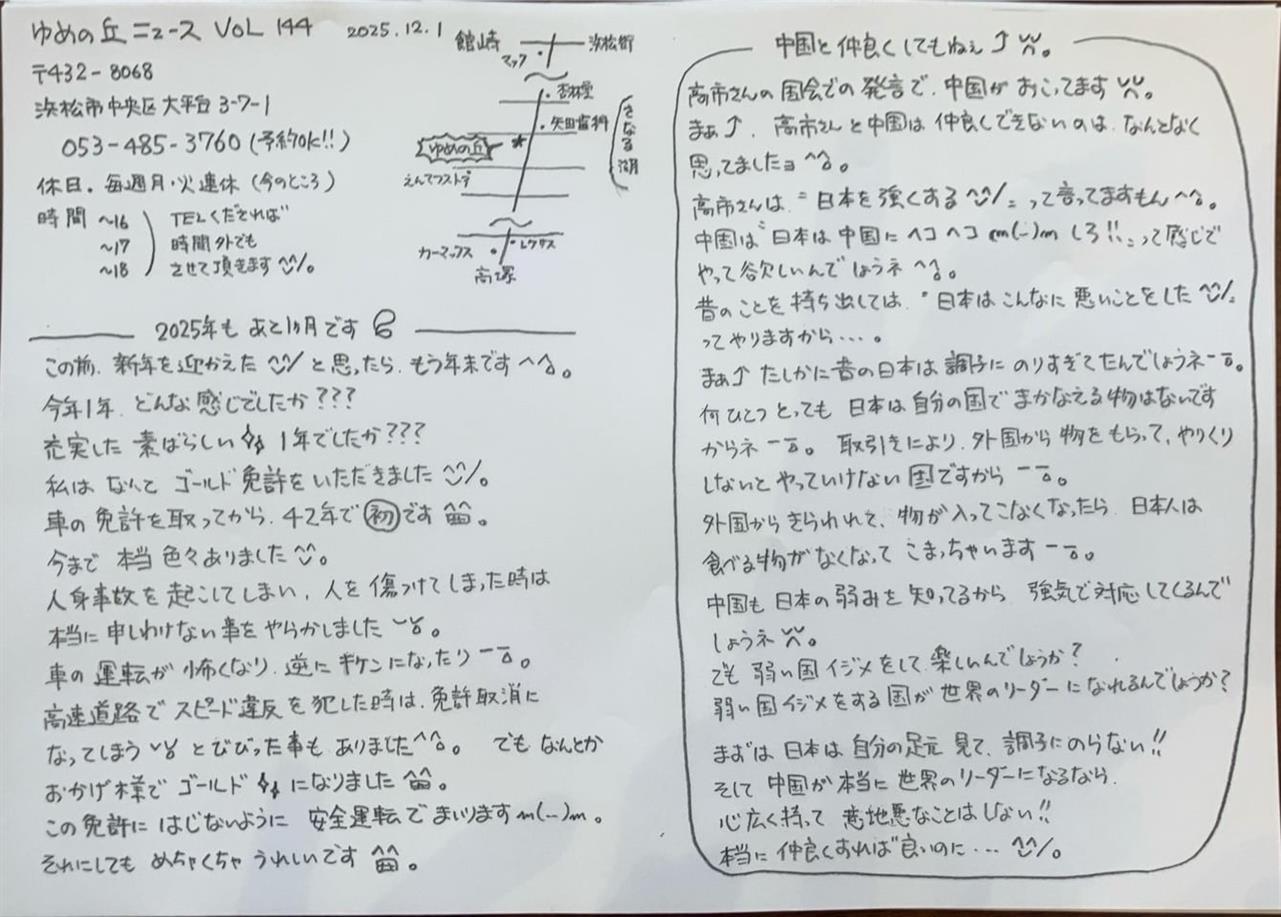 ゆめの丘ニュース VOL 144 2025.12.1
〒432-8068
浜松市中央区大平台3-7-1
053-485-3760(予約OK!!)
休日。毎週月・火連休(今のところ)
時間 ~16
~17
~18
TELくだされば
時間外でも
させて頂きます ^^/。
舘崎
マック
浜松街
杏林堂
矢田歯科
ゆめの丘
えんてつストア
さなる湖
カーマックス
レクサス
高塚
2025年も あと1ヶ月です
この前、新年を迎かえた ^^/ と思ったら、もう年末です ^^;。
今年1年、どんな感じでしたか???
充実した 素ばらしい 1年でしたか???
私は なんと ゴールド免許をいただきました ^^/。
車の免許を取ってから、42年で 初 です。
今まで 本当 色々ありました。
人身事故を起こしてしまい、人を傷つけてしまった時は
本当に申しわけない事をやらかしました。
車の運転が怖くなり、逆にキケンになったり ーー;。
高速道路でスピード違反を犯した時は、免許取消に
なってしまう とびびった事もありました ^^;。 でもなんとか
おかげ様で ゴールド になりました。
この免許に はじないように 安全運転でまいります m(_ _)m。
それにしても めちゃくちゃ うれしいです。
中国と仲良くしてもねぇ↑。
高市さんの国会での発言で、中国がおこってます。
まぁ↑、高市さんと中国は仲良しできないのは、なんとなく
思ってましたョ ^^;。
高市さんは、"日本を強くする ^^/" って言ってますもん ^^;。
中国は"日本は中国にヘコヘコ m(_ _)m しろ!!"って感じで
やって欲しいんでしょうネ ^^;。
昔のことを持ち出しては、"日本はこんなに悪いことをした ^^/"
ってやりますから・・・。
まぁ↑ たしかに昔の日本は調子にのりすぎてたんでしょうネ ーー;。
何ひとつとっても 日本は自分の国でまかなえる物はないです
からネ ーー;。 取引きにより、外国から物をもらって、やりくり
しないとやっていけない国ですから ーー;。
外国からきらわれて、物が入ってこなくなったら、日本人は
食べる物がなくなって こまっちゃいます ーー;。
中国も日本の弱みを知ってるから、強気で対応してくるんで
しょうネ。
でも 弱い国イジメをして、楽しいんでしょうか?
弱い国イジメをする国が世界のリーダーになれるんでしょうか?
まずは日本は自分の足元見て、調子にのらない!!
そして中国が本当に世界のリーダーになるなら、
心広く持って 意地悪なことはしない!!
本当に仲良くすれば良いのに・・・ ^^/。